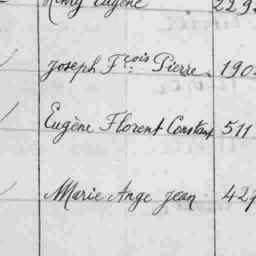 Rémy Eugène 229
Joseph F.çois Pierre 190
Eugène Florent Constant 511
Marie Ange Jean 427